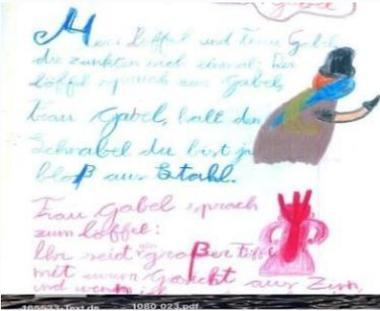 Herr Löffel und Frau Gabel
die zankten sich einmal: Der
Löffel sprach zur Gabel,
Frau Gabel, halt den
Schnabel du bist ja
bloß aus Stahl.
Frau Gabel sprach
zum Löffel:
Ihr seid ein großer Töffel
mit eurem Gesicht aus Zinn,
und wenn ich
1080 023.pdf